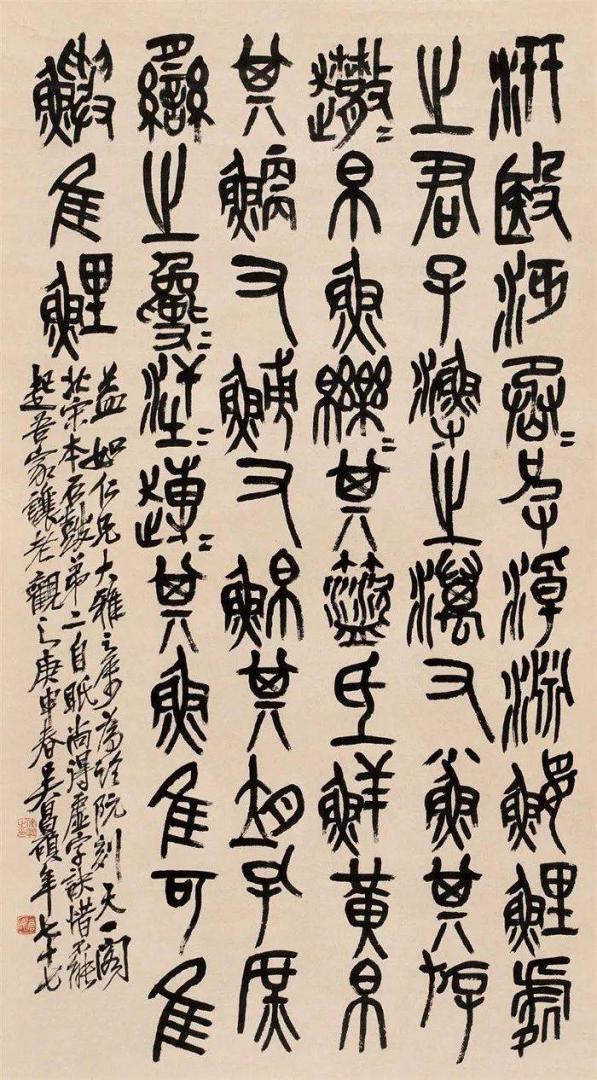 汧殹沔丞皮淖淵鰋鯉處
之君子漁之澫又小魚其斿
𨘌帛魚皪其盜氐鮮黃帛
其鯾又䱷又鮊其孔庶
臠之汗趍其魚隹可隹
鱮隹鯉
益如仁兄大雅之屬臨阮刻天一閣
北宋本石鼓第二自眂尚得虛字訣惜不能
起吾家讓老觀之庚申春吳昌碩年七十七